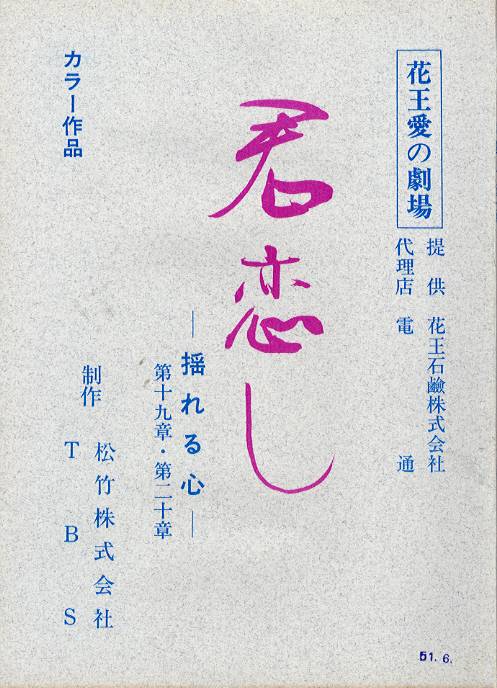 花王愛の劇場
提供 花王石鹼株式会社
代理店 電通
君恋し
―揺れる心―
第十九章・第二十章
カラー作品
制作 松竹株式会社
TBS
51.6.